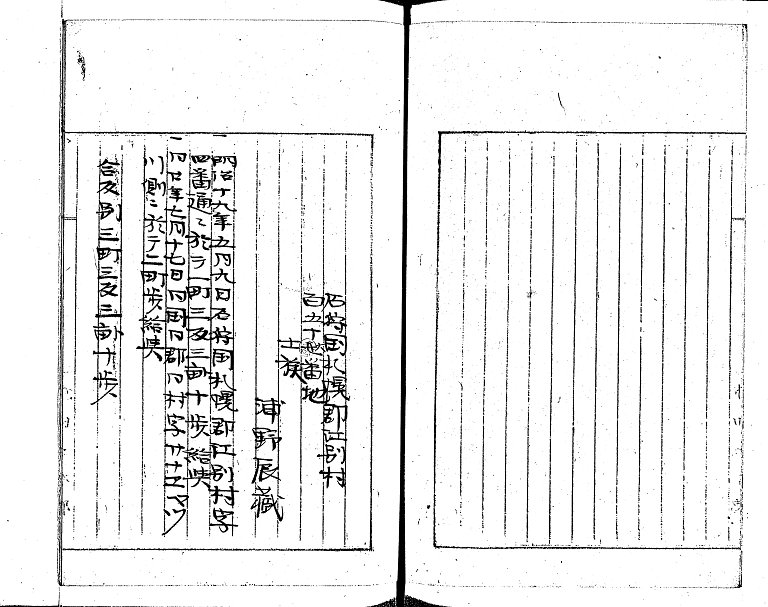 石狩国札幌郡江別村
百五十四番地
士族
浦野辰蔵
一 明治十九年五月九日石狩国札幌郡江別村字
四番通ニ於テ一町三反三畝十歩給与
一 同廿年七月十七日同国同郡同村字
川側ニ於テ二町歩給与
合反別三町三反三畝十歩